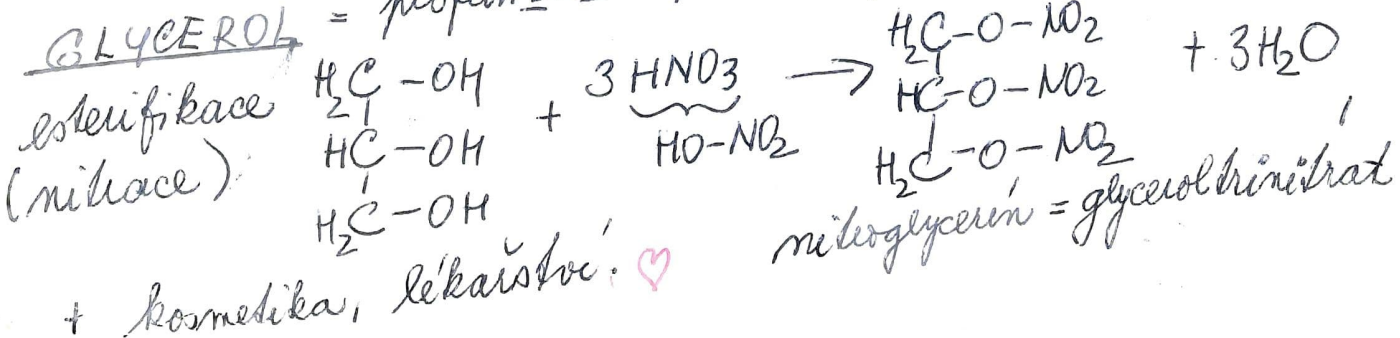 GLYCEROL =
esterifikace
(nitrace):
H2C-OH
HC-OH
H2C-OH
+ 3 HNO3 →
HO-NO2
H2C-O-NO2
HC-O-NO2
H2C-O-NO2
+ 3H2O
nitroglycerín = glyceroltrinitrát
+ kosmetika, lékařství! ♡